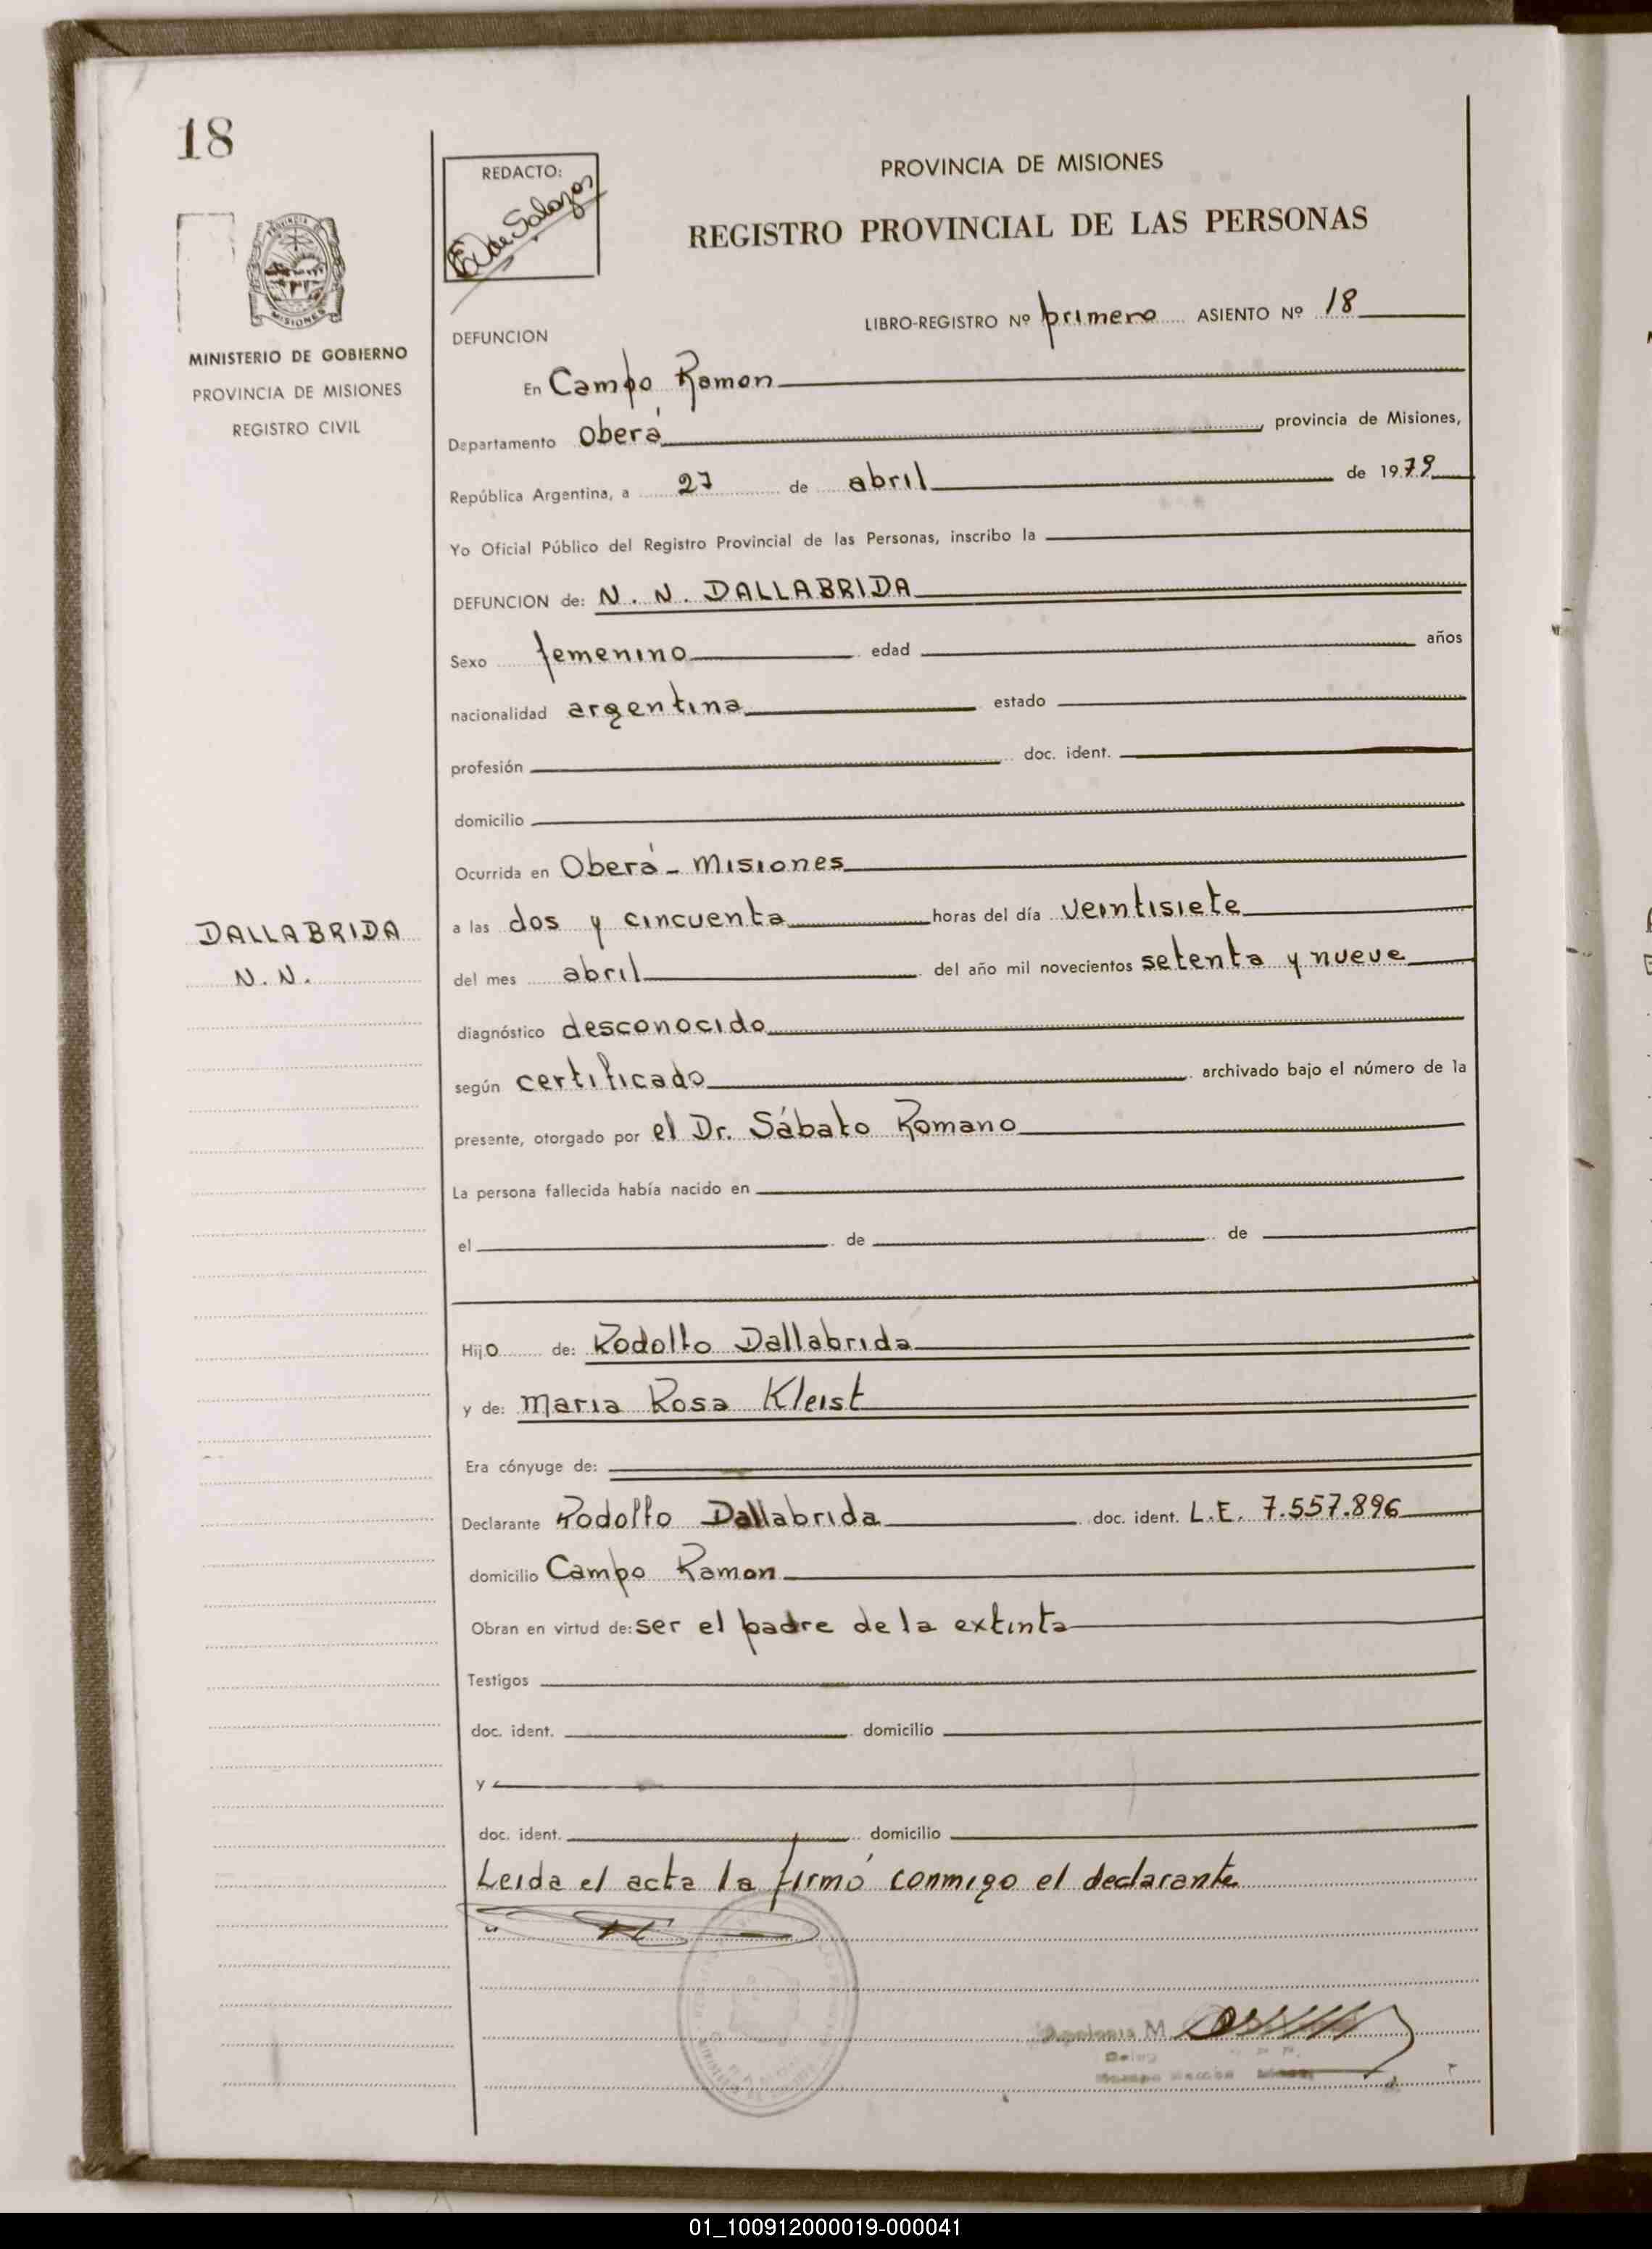 18
MINISTERIO DE GOBIERNO
PROVINCIA DE MISIONES
REGISTRO CIVIL
DALLABRIDA
N. N.
REDACTO:
PROVINCIA DE MISIONES
REGISTRO PROVINCIAL DE LAS PERSONAS
DEFUNCION LIBRO-REGISTRO Nº primero ASIENTO Nº 18
En Campo Ramon
Departamento Oberá, provincia de Misiones,
República Argentina, a 27 de abril de 1979
Yo Oficial Público del Registro Provincial de las Personas, inscribo la
DEFUNCION de: N. N. DALLABRIDA
Sexo femenino edad años
nacionalidad argentina estado
profesión doc. ident.
domicilio
Ocurrida en Oberá - Misiones
a las dos y cincuenta horas del día veintisiete
del mes abril del año mil novecientos setenta y nueve
diagnóstico desconocido
según certificado archivado bajo el número de la
presente, otorgado por el Dr. Sábato Romano
La persona fallecida había nacido en
el de de
Hijo de: Rodolfo Dallabrida
y de: Maria Rosa Kleist
Era cónyuge de:
Declarante Rodolfo Dallabrida doc. ident. L.E. 7.557.896
domicilio Campo Ramon
Obran en virtud de: ser el padre de la extinta
Testigos
doc. ident. domicilio
y
doc. ident. domicilio
Leida el acta la firmó conmigo el declarante
01_100912000019-000041